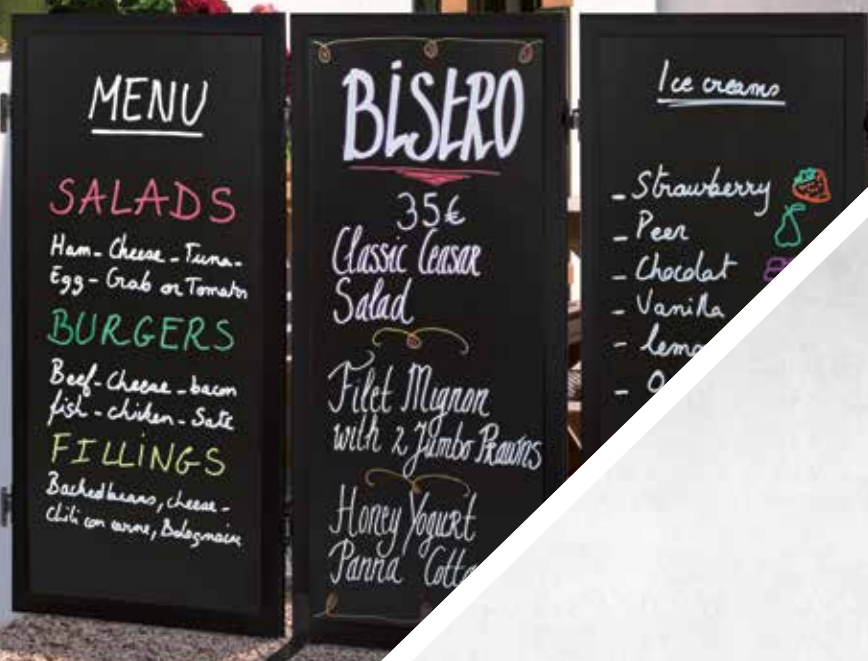 MENU
SALADS
Ham - Cheese - Tuna -
Egg - Crab or Tomato
BURGERS
Beef - Cheese - bacon
fish - chicken - Saté
FILLINGS
Backed beans, cheese -
chili con carne, Bolognaise
BISTRO
35€
Classic Ceasar
Salad
Filet Mignon
with 2 Jumbo Prawns
Honey Yogurt
Panna Cotta
Ice creams
- Strawberry
- Peer
- Chocolat
- Vanilla
- lemo
- O